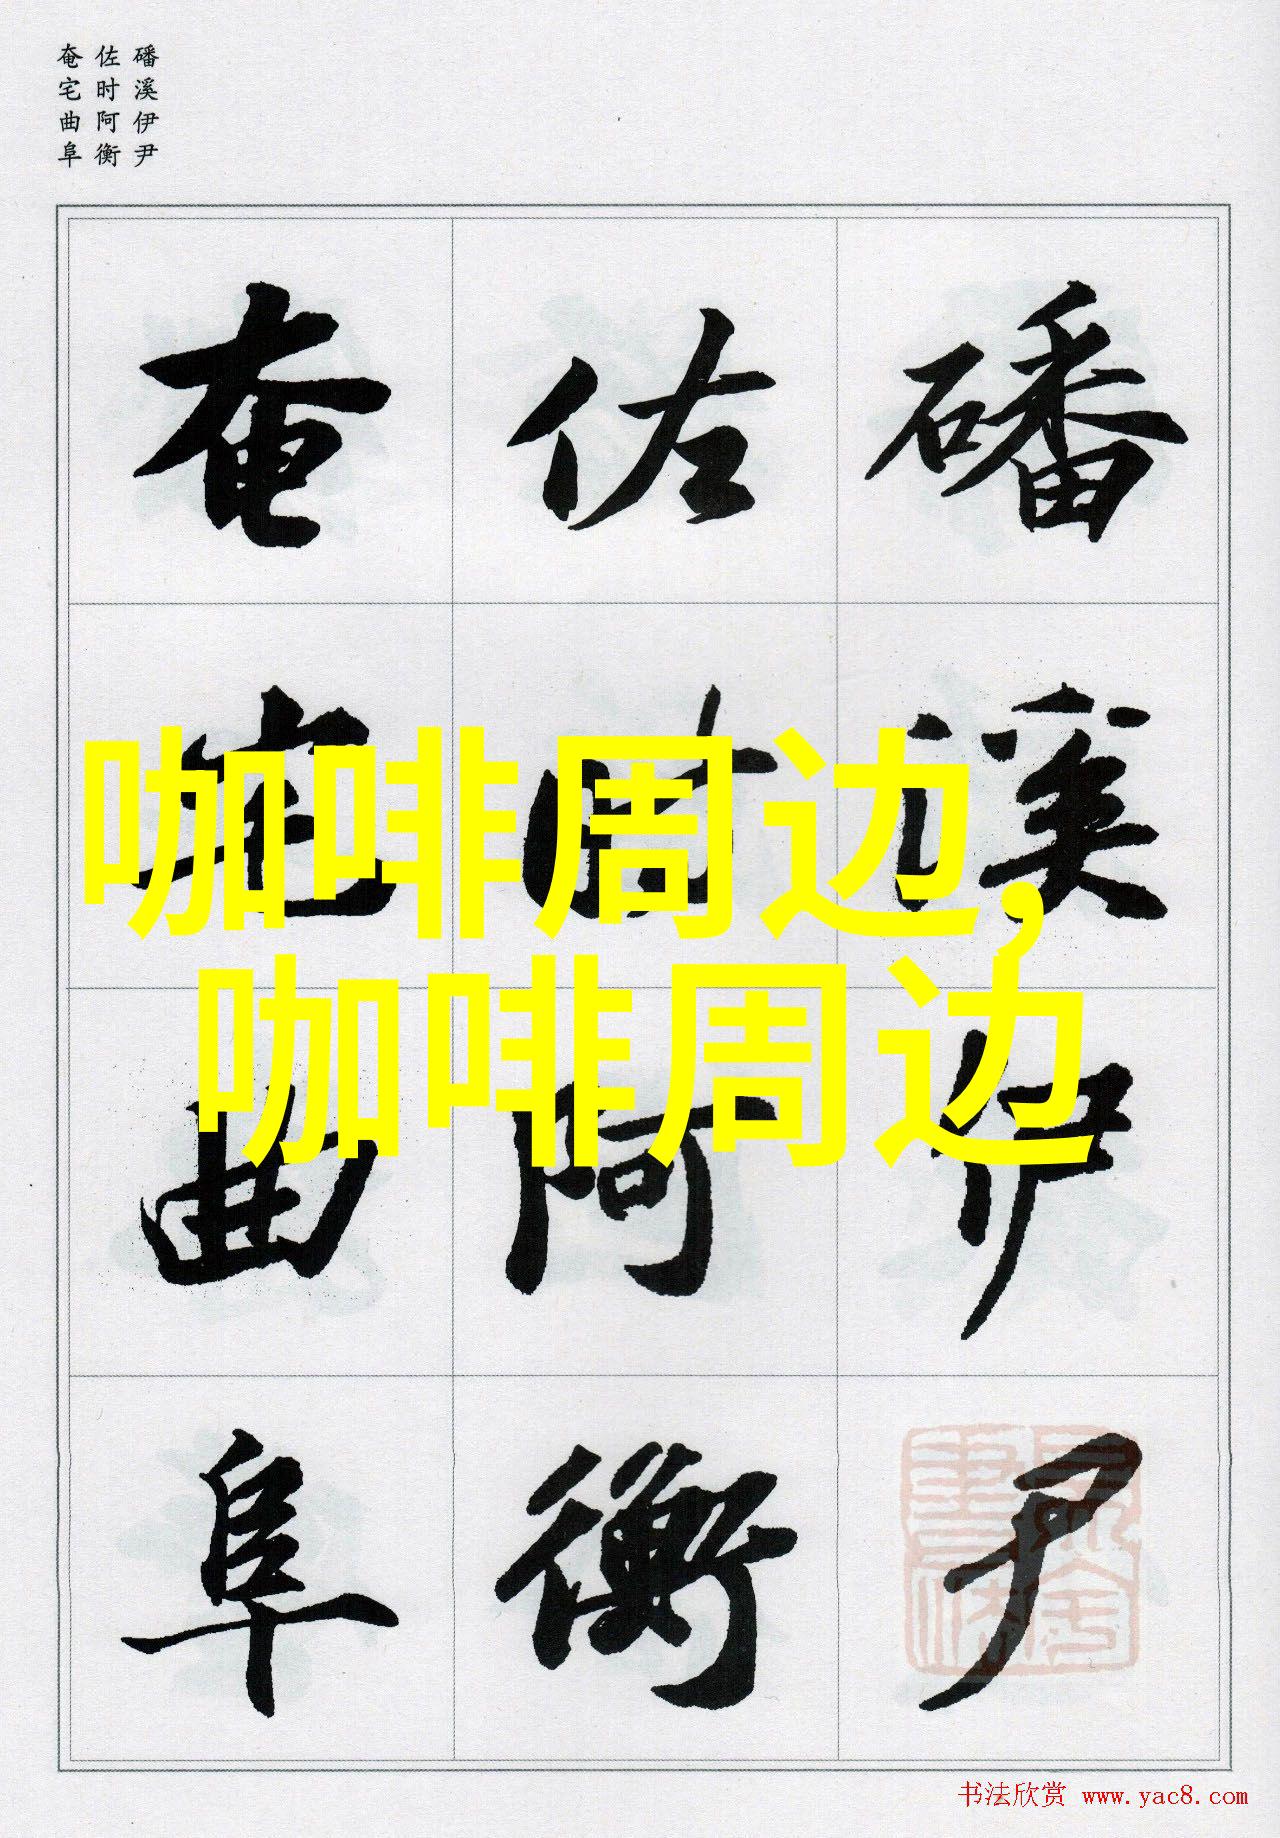 磻溪伊尹
佐时阿衡
奄宅曲阜
磻溪伊尹
佐时阿衡
奄宅曲阜
咖啡周边,
咖啡周边
书法欣赏 www.yac8.com